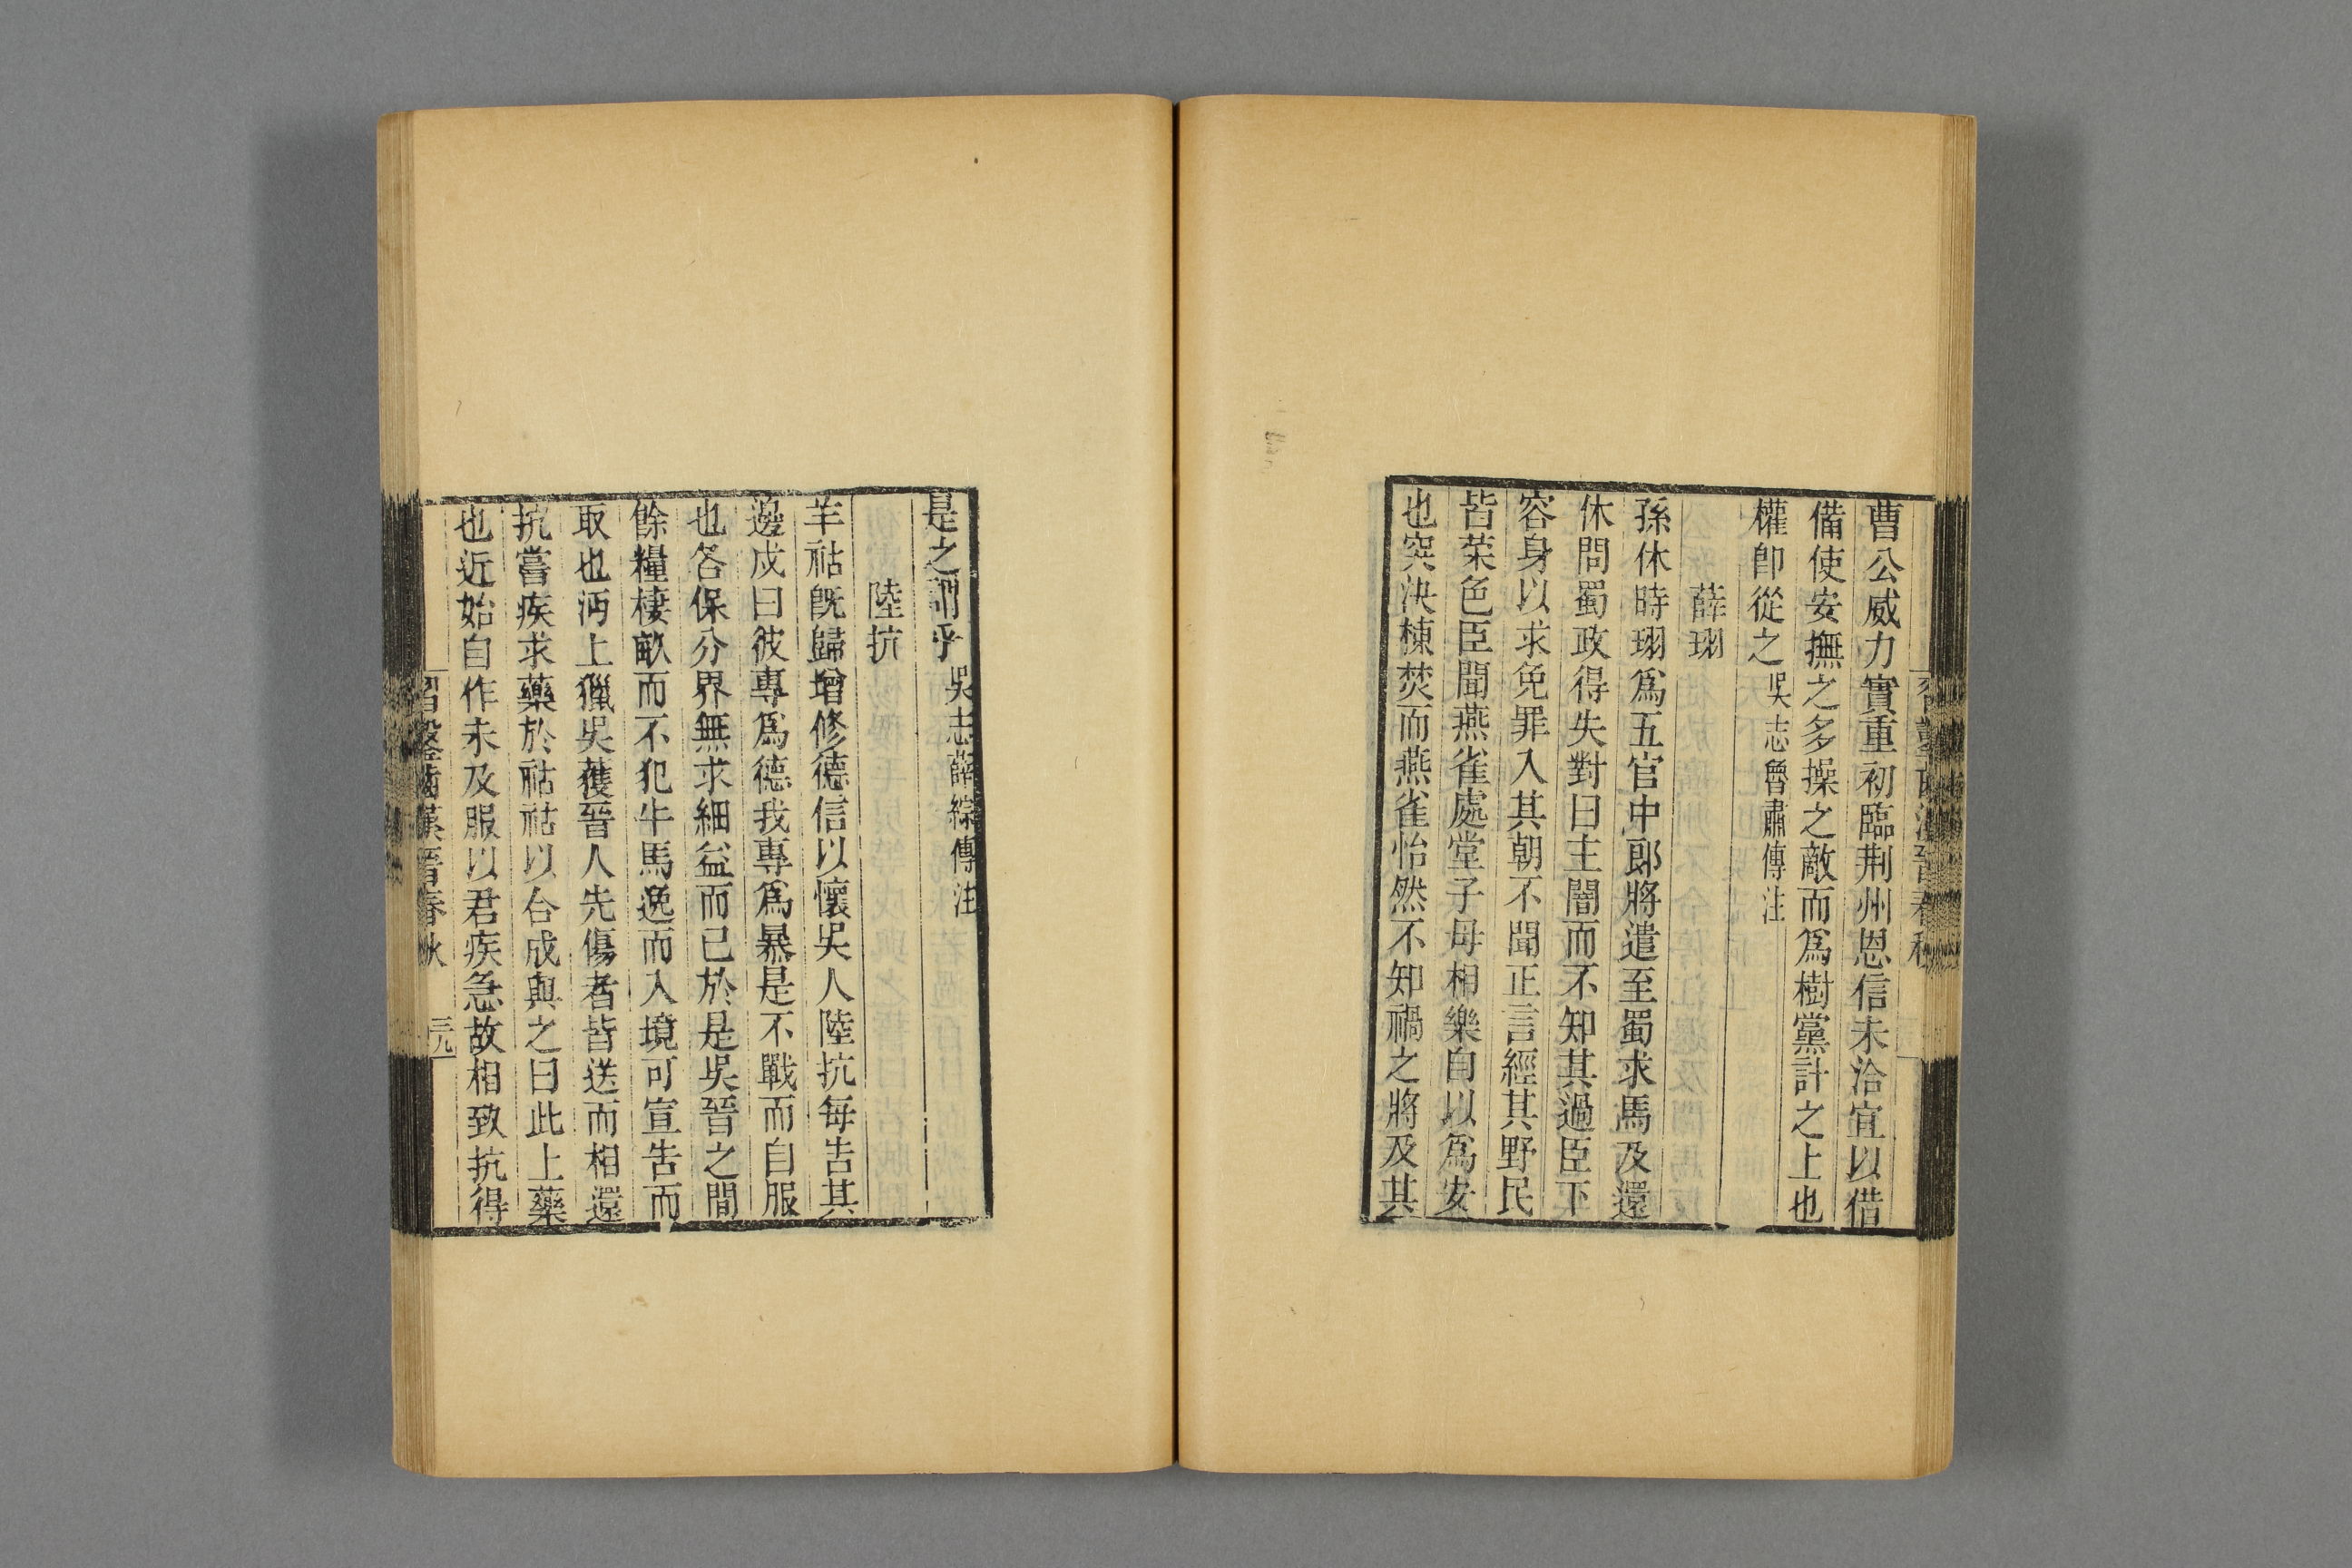 曹公威力實重初臨荆州恩信未洽宜以借
備使安撫之多操之敵而爲樹黨計之上也
權卽從之吳志魯肅傳注
薛珝
孫休時珝爲五官中郎將遣至蜀求馬及還
休問蜀政得失對曰主闇而不知其過臣下
容身以求免罪入其朝不聞正言經其野民
皆菜色臣聞燕雀處堂子母相樂自以爲安
也突決棟焚而燕雀怡然不知禍之將及其
是之謂乎吳志薛綜傳注
陸抗
羊祜旣歸增修德信以懷吳人陸抗每告其
邊戍曰彼專爲德我專爲暴是不戰而自服
也各保分界無求細益而已於是吳晉之間
餘糧棲畝而不犯牛馬逸而入境可宣告而
取也沔上獵吳獲晉人先傷者皆送而相還
抗嘗疾求藥於祜祜以合成與之曰此上藥
也近始自作未及服以君疾急故相致抗得
習鑿齒漢晉春秋 三九